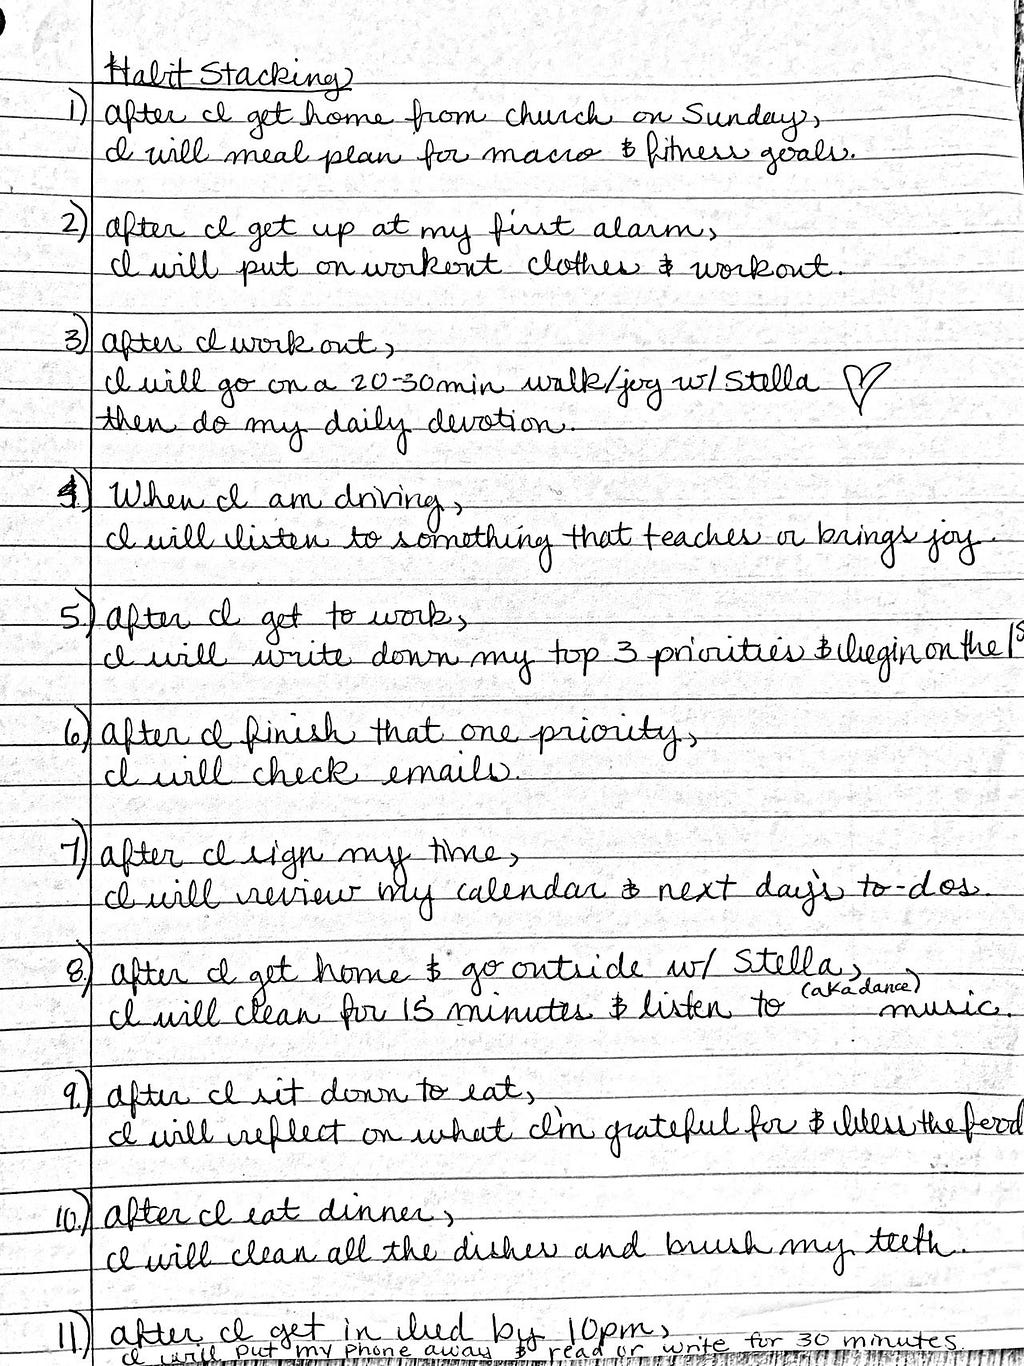 Habit Stacking
1) after I get home from church on Sunday,
I will meal plan for macro & fitness goals.
2) after I get up at my first alarm,
I will put on workout clothes & workout.
3) after I work out,
I will go on a 20-30 min walk/jog w/ Stella ♡
then do my daily devotion.
4) When I am driving,
I will listen to something that teaches or brings joy.
5.) after I get to work,
I will write down my top 3 priorities & begin on the 1s
6.) after I finish that one priority,
I will check emails.
7.) after I sign my time,
I will review my calendar & next day's to-dos.
8.) after I get home & go outside w/ Stella,
I will clean for 15 minutes & listen to (aka dance) music.
9.) after I sit down to eat,
I will reflect on what I'm grateful for & bless the food
10.) after I eat dinner,
I will clean all the dishes and brush my teeth.
11) after I get in bed by 10pm,
I will put my phone away & read or write for 30 minutes.